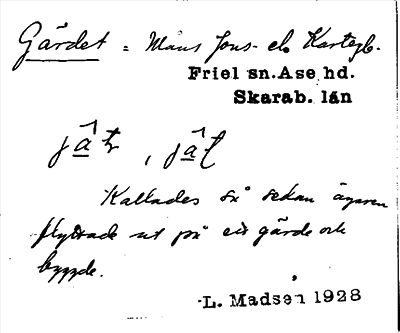 Gärdet = Måns Jons- el. Kartegb.
Friel sn. Åse hd.
Skarab. län
Kallades så sedan ägaren
flyttade ut på ett gärde och
byggde.
L. Madsen 1928